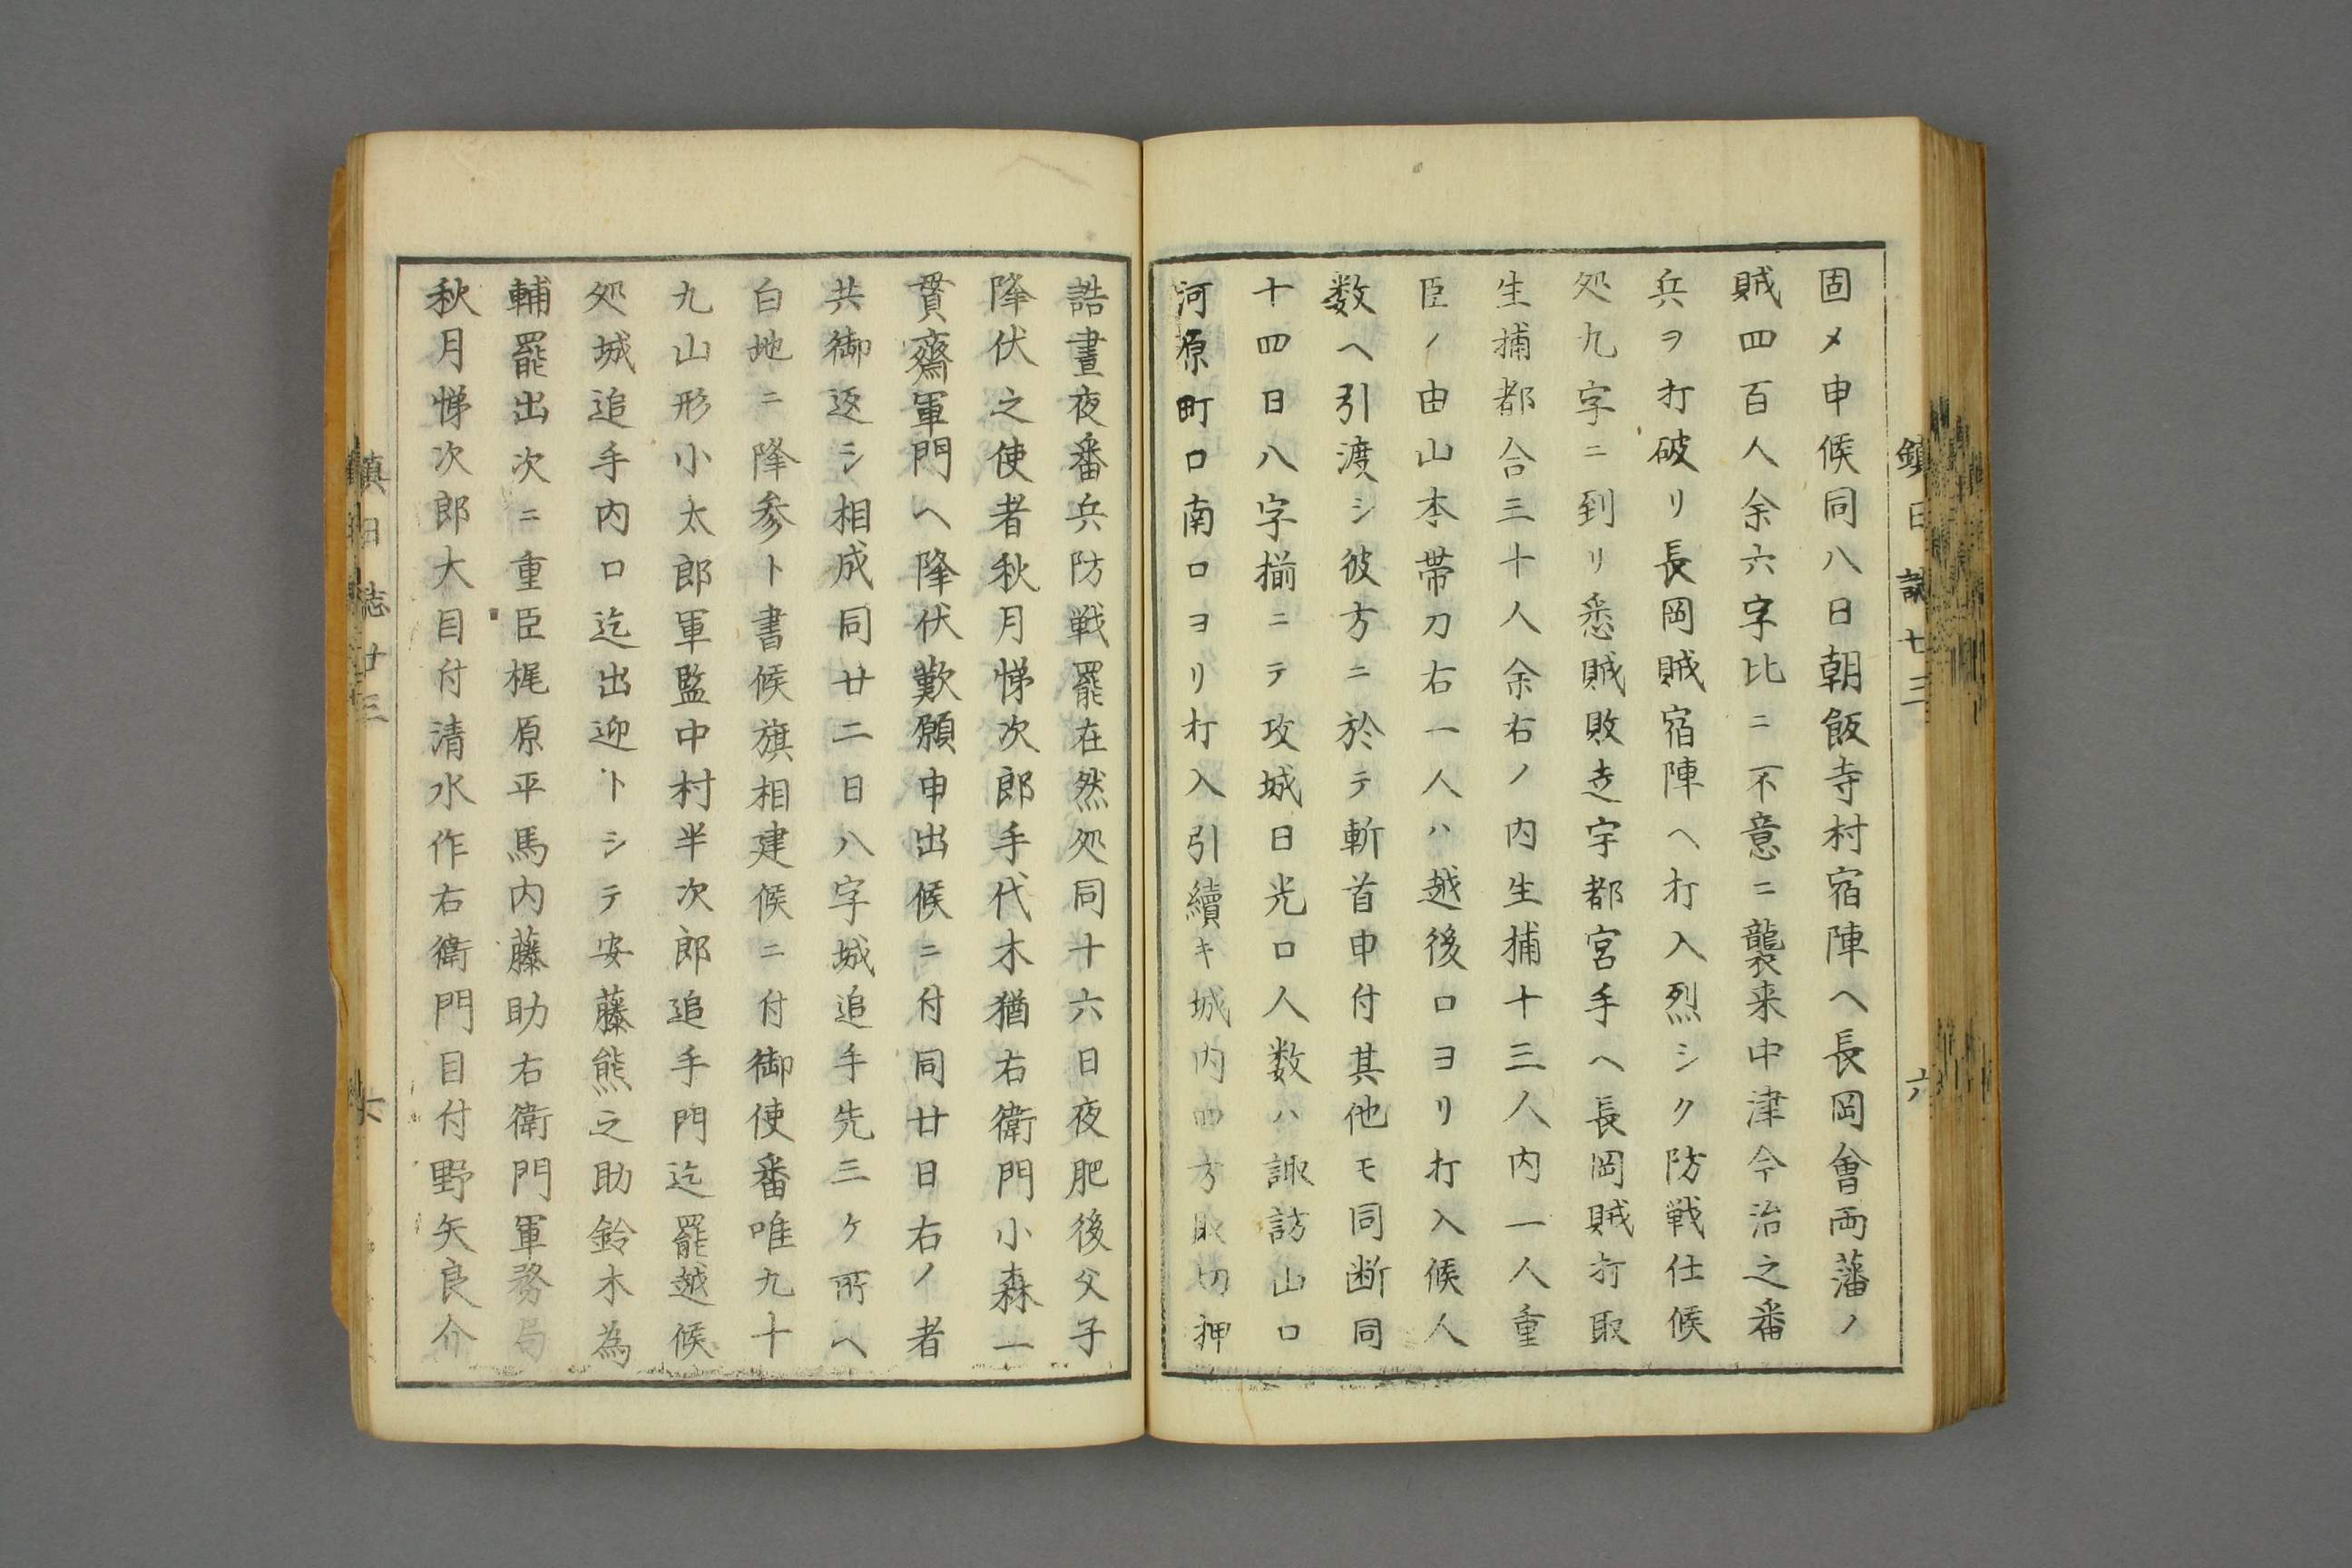 鎮日誌廿三
六
固メ申候同八日朝飯寺村宿陣ヘ長岡會両藩ノ
賊四百人余六字比ニ不意ニ襲来中津今治之番
兵ヲ打破リ長岡賊宿陣ヘ打入烈シク防戦仕候
処九字ニ到リ悉賊敗走宇都宮手ヘ長岡賊打取
生捕都合三十人余右ノ内生捕十三人内一人重
臣ノ由山本帯刀右一人ハ越後口ヨリ打入候人
数ヘ引渡シ彼方ニ於テ斬首申付其他モ同断同
十四日八字揃ニテ攻城日光口人数ハ諏訪山口
河原町口南口ヨリ打入引續キ城内四方取切押
詰晝夜番兵防戦罷在然処同十六日夜肥後父子
降伏之使者秋月悌次郎手代木猶右衛門小森一
貫齋軍門ヘ降伏歎願申出候ニ付同廿日右ノ者
共御返シ相成同廿二日八字城追手先三ケ所ヘ
白地ニ降参ト書候旗相建候ニ付御使番唯九十
九山形小太郎軍監中村半次郎追手門迄罷越候
処城追手内口迄出迎トシテ安藤熊之助鈴木為
輔罷出次ニ重臣梶原平馬内藤助右衛門軍務局
秋月悌次郎大目付清水作右衛門目付野矢良介
鎮日誌廿三
六